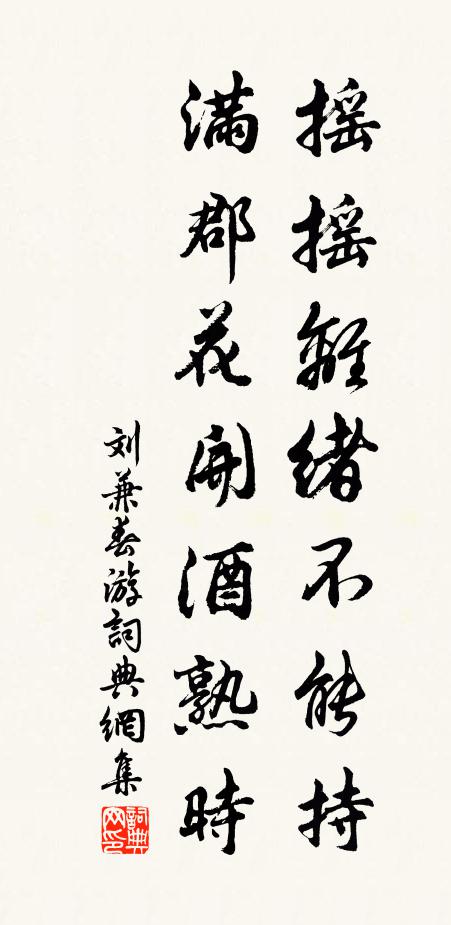 摇摇離緒不能持
满郡花開酒熟時
刘兼春游詞典網集
詞典网印